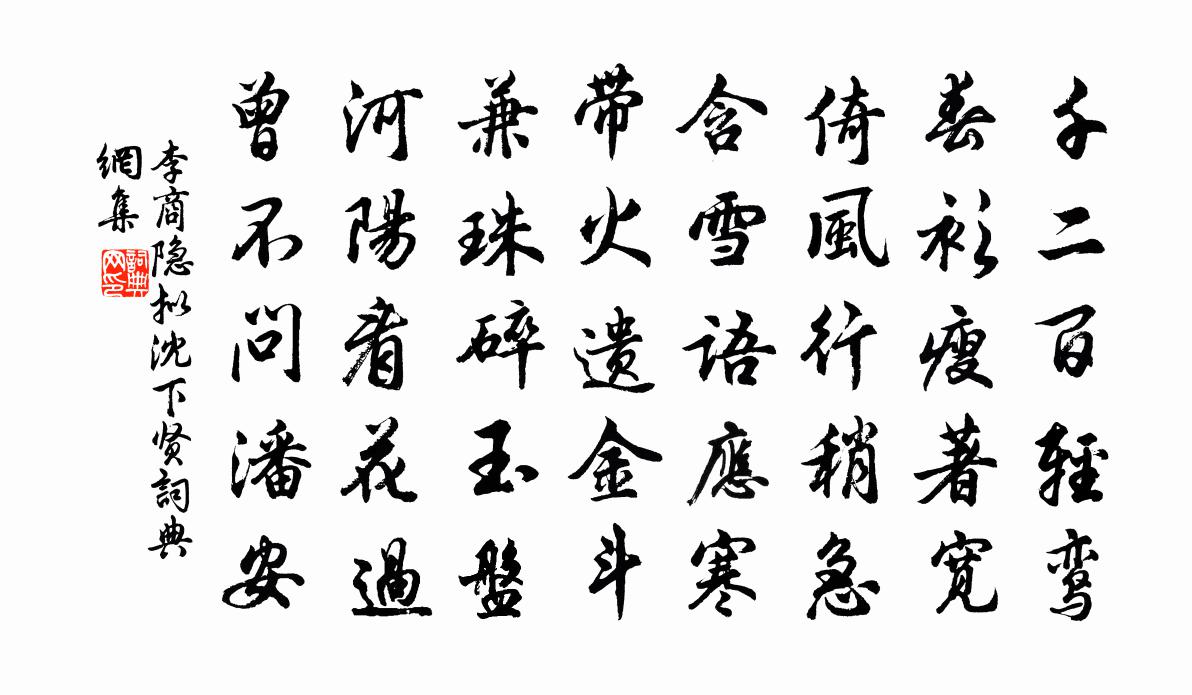 千二百輕鸾
春衫瘦著宽
倚風行稍急
含雪語應寒
带火遗金斗
兼珠碎玉盤
河陽看花過
曾不問潘安
李商隐拟沈下贤詞典
網集
詞典
网印